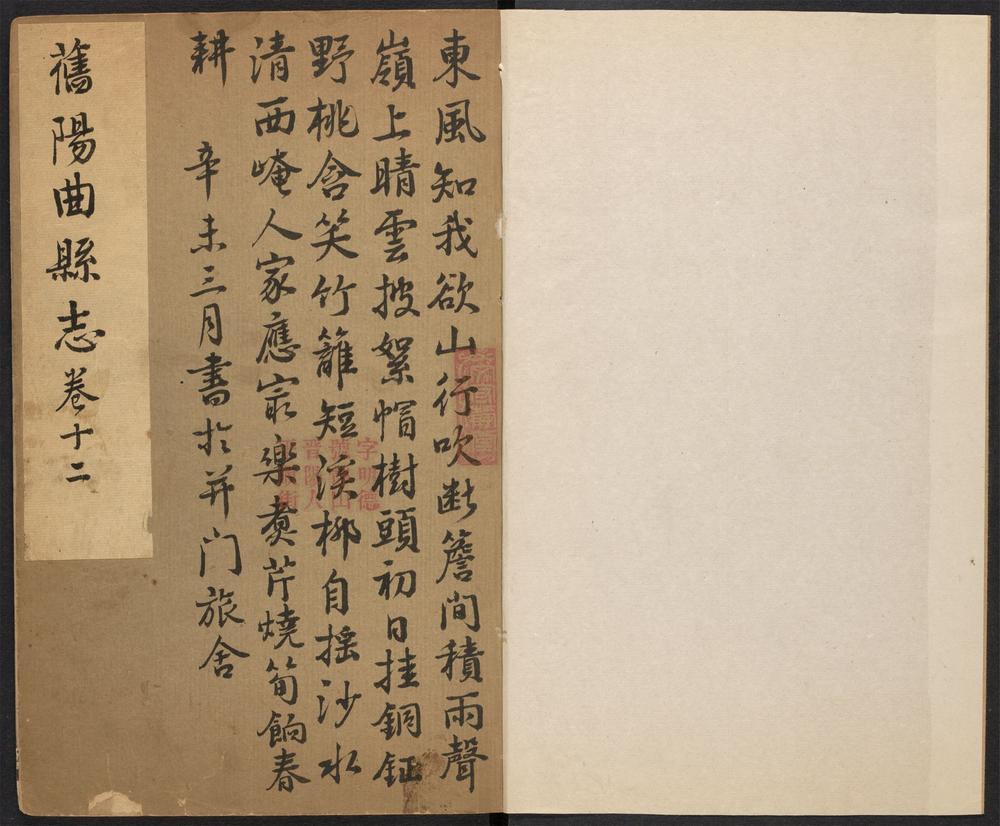 東風知我欲山行吹断簷間積雨聲
嶺上晴雲披絮帽樹頭初日挂銅鉦
野桃含笑竹籬短溪柳自摇沙水
清西崦人家應冣樂煑芹燒筍餉春
耕
辛未三月書於并门旅舍
舊陽曲縣志卷十二